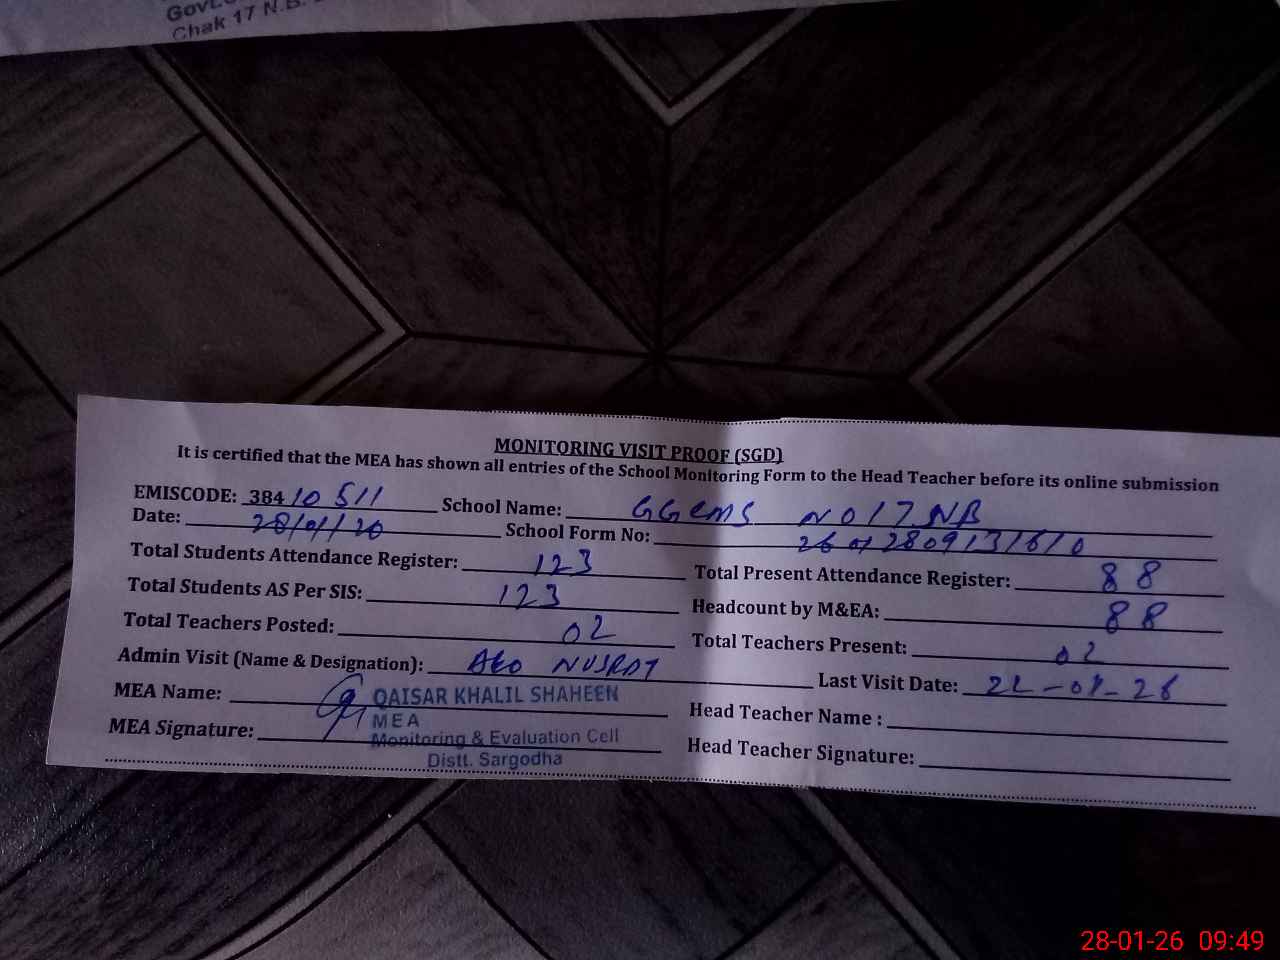 Chak 17 N.B.
MONITORING VISIT PROOF (SGD)
It is certified that the MEA has shown all entries of the School Monitoring Form to the Head Teacher before its online submission
EMISCODE: 38410511 School Name: GGCMS NO 17 NB
Date: 28/01/26 School Form No: 26012809131610
Total Students Attendance Register: 123 Total Present Attendance Register: 88
Total Students AS Per SIS: 123 Headcount by M&EA: 88
Total Teachers Posted: 02 Total Teachers Present: 02
Admin Visit (Name & Designation): AEO NUSRAT Last Visit Date: 22-01-26
MEA Name: QAISAR KHALIL SHAHEEN Head Teacher Name :
MEA
MEA Signature: Monitoring & Evaluation Cell Head Teacher Signature:
Distt. Sargodha
28-01-26 09:49